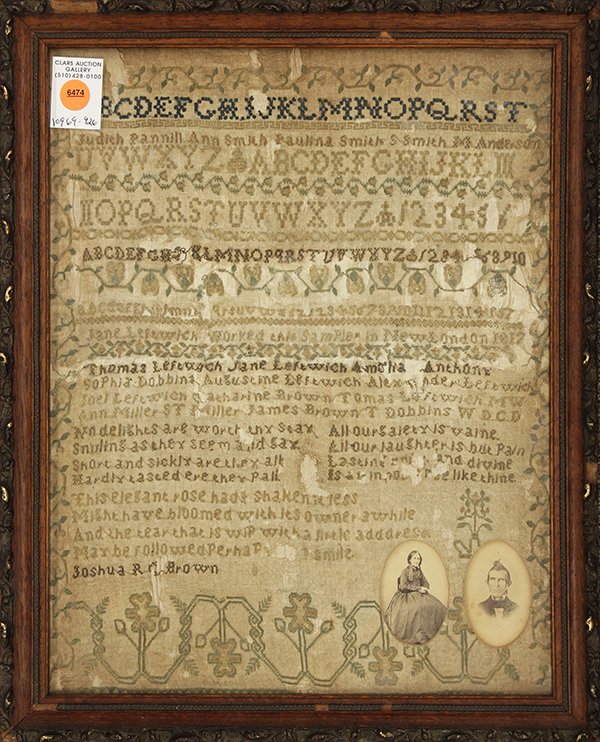 CLARS AUCTION
GALLERY
(510) 428-0100
6474
10969-426
BCDEFGHIJKLMNOPQRST
Judith Pannill Ann Smith Paulina Smith S Smith M Anderson
UVWXYZ & ABCDEFGHIJKLM
NOPQRSTUVWXYZ & 12345
ABCDEFGHIJKLMNOPQRSTUVWXYZ & 12345678910
Jane Leftwich Worked this Sampler in New London 1817
Thomas Leftwich Jane Leftwich Amelia Anthony
Sophia Dobbins Augustine Leftwich Alexander Leftwich
Joel Leftwich Catharine Brown Tomas Leftwich M W
Ann Miller ST Miller James Brown T Dobbins W D C D
No delights are worth thy stay All our gaiety is vaine
Smiling as they seem and gay All our laughter is but Pain
Short and sickly are they all Lasting and divine
Hardly tasted ere they Pall Is an like thine
This elegant rose had shaken less
Might have bloomed with its owner awhile
And the tear that is wiP with a little address
May be followed Perha smile
Joshua R Brown